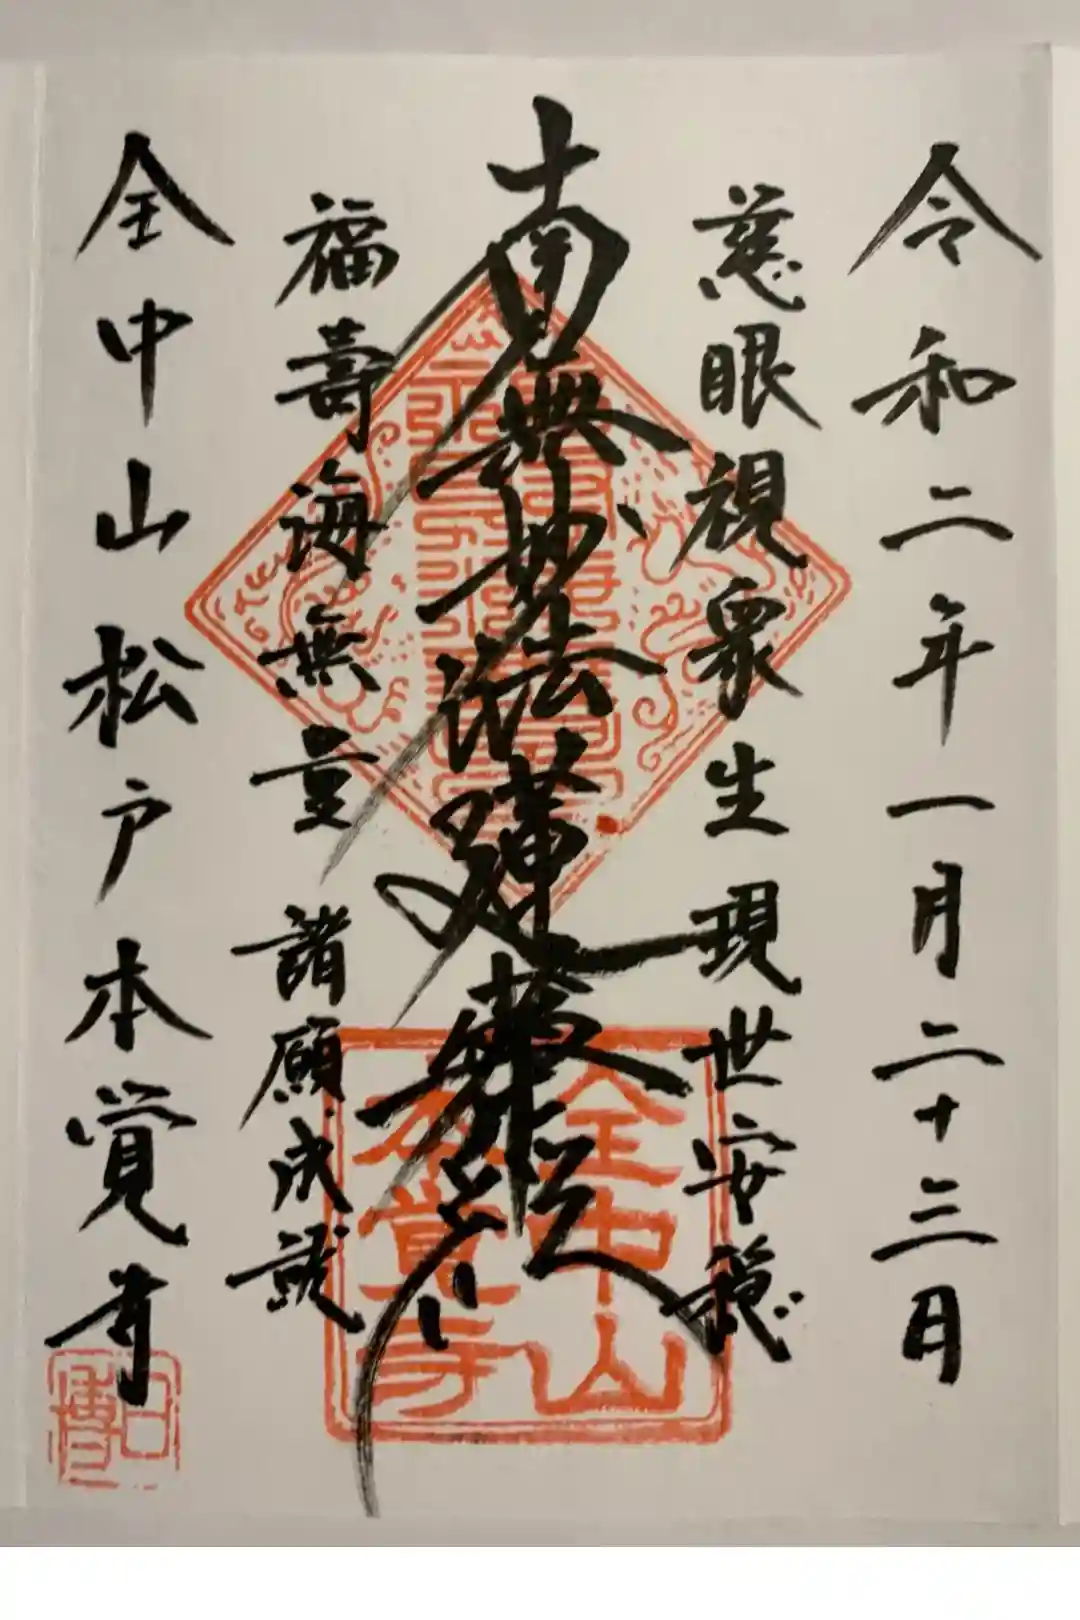 令和二年一月二十三日
慈眼視衆生現世安穏
南無妙法蓮華経
福壽海無量諸願成就
全中山松戸本覚寺
全中山
本覚寺